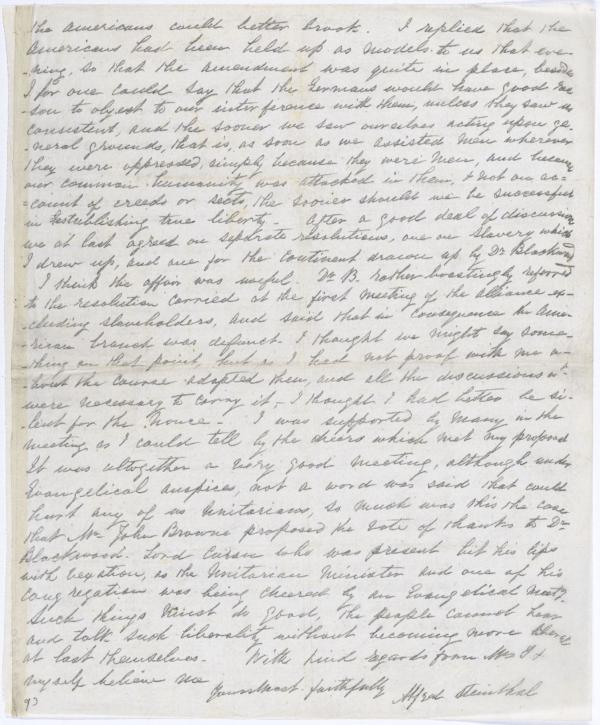 the Americans could better brook. I replied that the
Americans had been held up as models to us that eve-
-ning, so that the amendment was quite in place, besides
I for one could say that the Germans would have good rea
son to object to our interference with them, unless they saw us
consistent, and the sooner we saw ourselves acting upon ge-
-neral grounds, that is, as soon as we assisted men wherever
they were oppressed, simply because they were men, and because
our common humanity was attacked in them, & not on ac-
-count of creeds or sects, the sooner should we be successful
in establishing true liberty. After a good deal of discussion
we at last agreed on separate resolutions, one on Slavery which
I drew up, and one for the Continent drawn up by Dr Blackwood
I think the affair was useful. Dr B. rather boastingly referred
to the resolution carried at the first meeting of the alliance ex-
cluding slaveholders, and said that in consequence the Ame-
rican branch was defunct. I thought we might say some-
-thing on that point, but as I had not proof with me a-
-bout the course adopted then, and all the discussions wh
were necessary to carry it, I thought I had better be si-
-lent for the nonce. I was supported by many in the
meeting as I could tell by the cheers which met my proposal
It was altogether a very good meeting, although under
Evangelical auspices, not a word was said that could
hurt any of us Unitarians, so much was this the case
that Mr John Browne proposed the vote of thanks to Dr
Blackwood. Lord who was present bit his lips
with vexation, as the Unitarian Minister and one of his
congregation was being cheered by an Evangelical meetg.
Such things must do good, the people cannot hear
and talk such liberality without becoming more
at last themselves. With kind regards from Mrs S &
myself believe me
Yours most faithfully
Alfred Steinthal